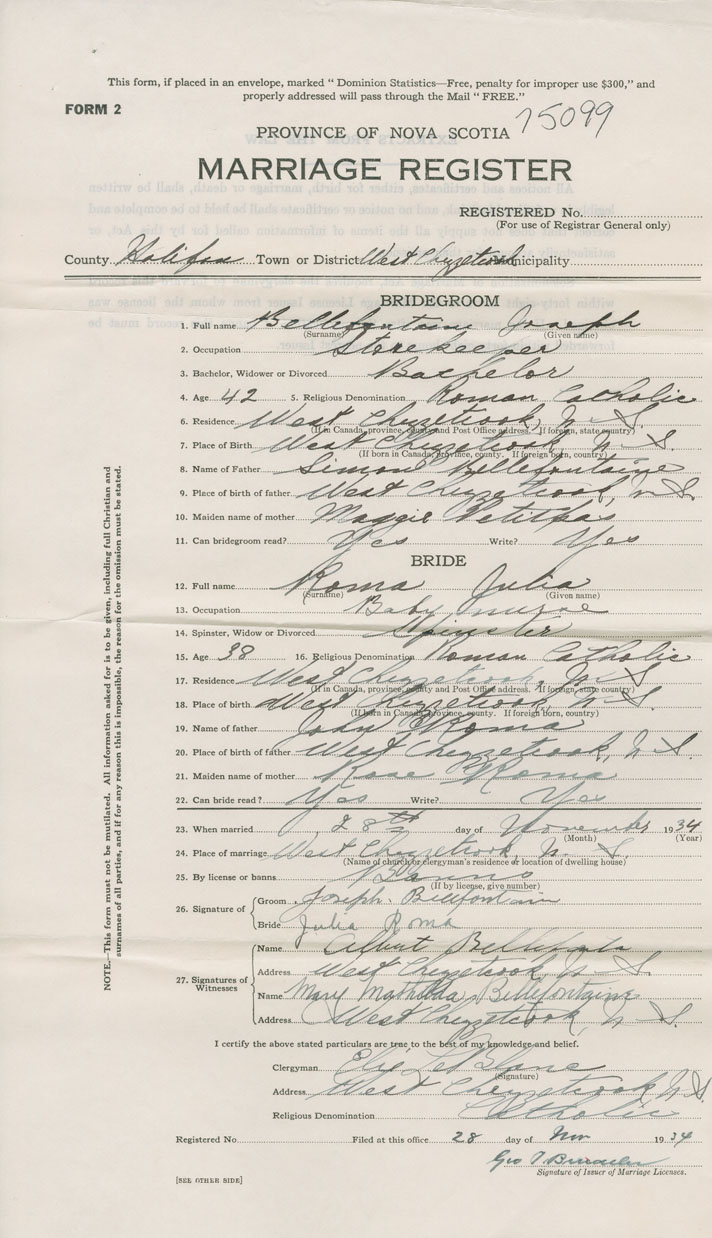 This form, if placed in an envelope, marked “ Dominion Statistics—Free, penalty for improper use $300,” and
properly addressed will pass through the Mail “ FREE.”
FORM 2
PROVINCE OF NOVA SCOTIA 75099
MARRIAGE REGISTER
REGISTERED No.
(For use of Registrar General only)
County Halifax Town or District West Chezzetcook Municipality
BRIDEGROOM
1. Full name Bellefontaine Joseph
(Surname) (Given name)
2. Occupation Storekeeper
3. Bachelor, Widower or Divorced Bachelor
4. Age 42 5. Religious Denomination Roman Catholic
6. Residence West Chezzetcook, N. S.
(If in Canada, province, county and Post Office address. If foreign, state country)
7. Place of Birth West Chezzetcook, N. S.
(If born in Canada, province, county. If foreign born, country)
8. Name of Father Simon Bellefontaine
9. Place of birth of father West Chezzetcook, N. S.
10. Maiden name of mother Maggie Petitpas
11. Can bridegroom read? Yes Write? Yes
BRIDE
12. Full name Roma Julia
(Surname) (Given name)
13. Occupation Baby nurse
14. Spinster, Widow or Divorced Spinster
15. Age 38 16. Religious Denomination Roman Catholic
17. Residence West Chezzetcook, N. S.
(If in Canada, province, county and Post Office address. If foreign, state country)
18. Place of birth West Chezzetcook, N. S.
(If born in Canada, province, county. If foreign born, country)
19. Name of father John Roma
20. Place of birth of father West Chezzetcook, N. S.
21. Maiden name of mother Rose Roma
22. Can bride read? Yes Write? Yes
23. When married 28th day of November 1934
(Month) (Year)
24. Place of marriage West Chezzetcook, N. S.
(Name of church or clergyman's residence or location of dwelling house)
25. By license or banns Banns
(If by license, give number)
26. Signature of
Groom Joseph Bellefontaine
Bride Julia Roma
27. Signatures of Witnesses
Name Albert
Address West Chezzetcook N. S.
Name Mary Mathilda Bellefontaine
Address West Chezzetcook, N. S.
I certify the above stated particulars are true to the best of my knowledge and belief.
Clergyman Elie LeBlanc
(Signature)
Address West Chezzetcook N. S.
Religious Denomination Catholic
Registered No. Filed at this office 28 day of Nov 1934
Geo
Signature of Issuer of Marriage Licenses.
[SEE OTHER SIDE]
NOTE.—This form must not be mutilated. All information asked for is to be given, including full Christian and
surnames of all parties, and if for any reason this is impossible, the reason for the omission must be stated.